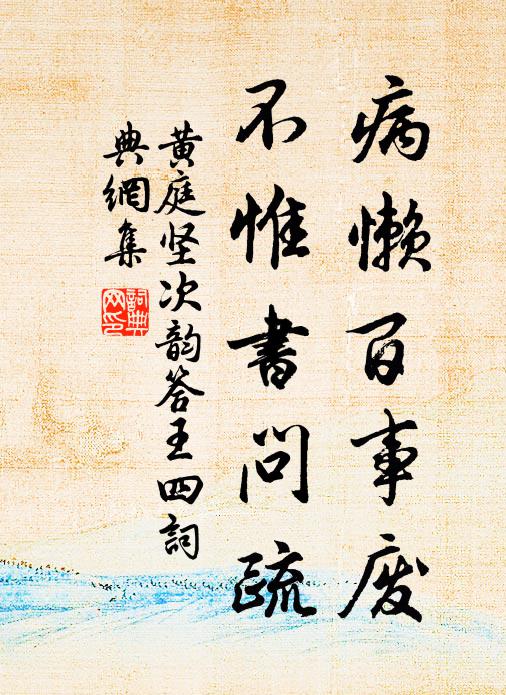 病懒百事废
不惟書问疏
黄庭坚次韵答王四詞
典網集
詞典网印